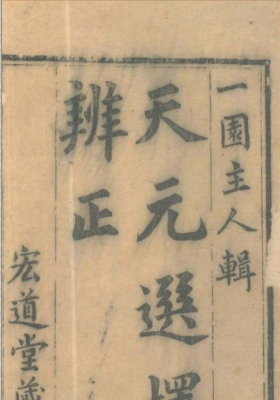 一園主人輯
天元選擇
辨正
宏道堂藏